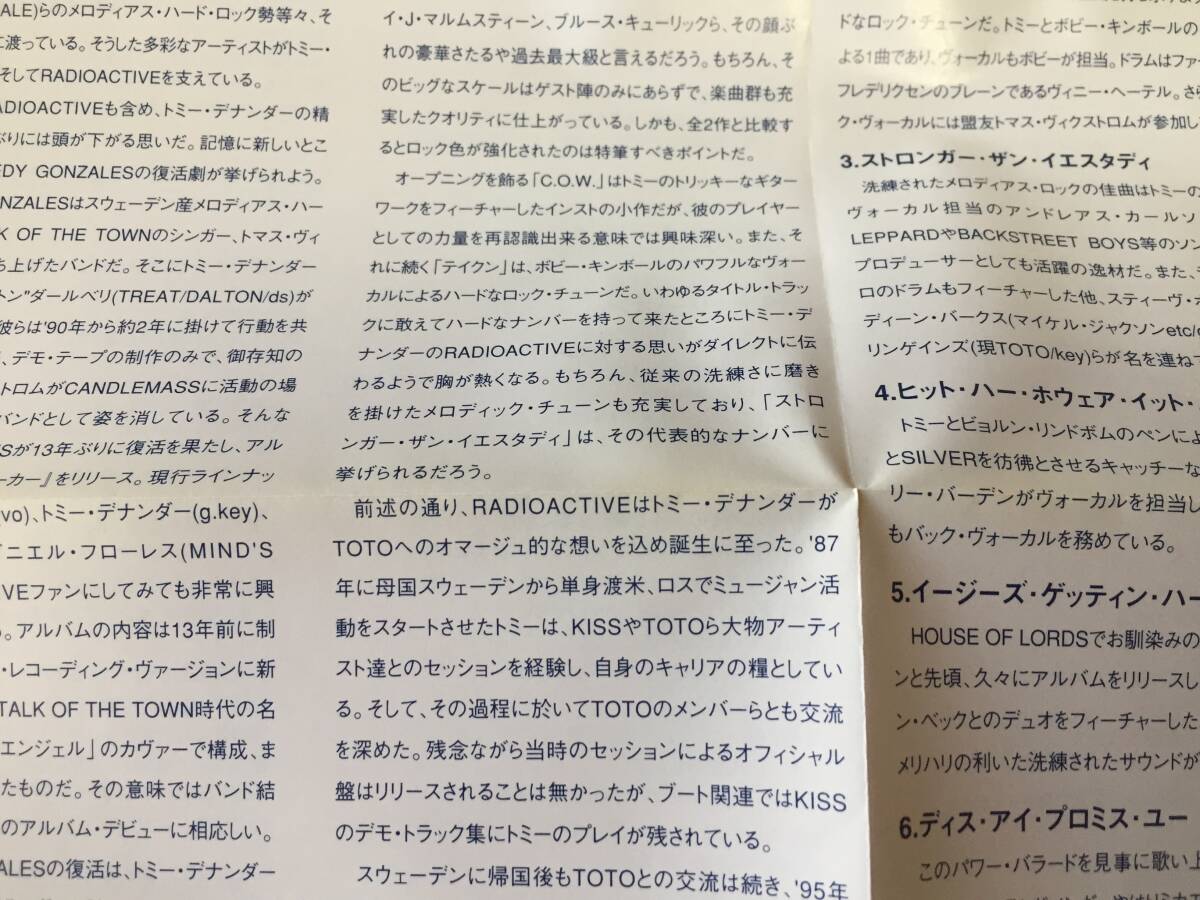 ZALE)らのメロディアス・ハード・ロック勢等々、そ
に渡っている。そうした多彩なアーティストがトミー・
そしてRADIOACTIVEを支えている。
ADIOACTIVEも含め、トミー・デナンダーの精
ぶりには頭が下がる思いだ。記憶に新しいとこ
EDY GONZALESの復活劇が挙げられよう。
NZALESはスウェーデン産メロディアス・ハー
K OF THE TOWNのシンガー、トマス・ヴィ
ち上げたバンドだ。そこにトミー・デナンダー
トン"ダールベリ(TREAT/DALTON/ds)が
彼らは'90年から約2年に掛けて行動を共
、デモ・テープの制作のみで、御存知の
トロムがCANDLEMASSに活動の場
バンドとして姿を消している。そんな
Sが13年ぶりに復活を果たし、アル
ーカー』をリリース。現行ラインナッ
(vo)、トミー・デナンダー(g.key)、
ニエル・フローレス(MIND'S
IVEファンにしてみても非常に興
。アルバムの内容は13年前に制
・レコーディング・ヴァージョンに新
TALK OF THE TOWN時代の名
エンジェル」のカヴァーで構成、ま
たものだ。その意味ではバンド結
のアルバム・デビューに相応しい。
ALESの復活は、トミー・デナンダー
イ・J・マルムスティーン、ブルース・キューリックら、その顔ぶ
れの豪華さたるや過去最大級と言えるだろう。もちろん、そ
のビッグなスケールはゲスト陣のみにあらずで、楽曲群も充
実したクオリティに仕上がっている。しかも、全2作と比較す
るとロック色が強化されたのは特筆すべきポイントだ。
オープニングを飾る「C.O.W.」はトミーのトリッキーなギター
ワークをフィーチャーしたインストの小作だが、彼のプレイヤー
としての力量を再認識出来る意味では興味深い。また、そ
れに続く「テイクン」は、ボビー・キンボールのパワフルなヴォー
カルによるハードなロック・チューンだ。いわゆるタイトル・トラッ
クに敢えてハードなナンバーを持って来たところにトミー・デ
ナンダーのRADIOACTIVEに対する思いがダイレクトに伝
わるようで胸が熱くなる。もちろん、従来の洗練さに磨き
を掛けたメロディック・チューンも充実しており、「ストロ
ンガー・ザン・イエスタディ」は、その代表的なナンバーに
挙げられるだろう。
前述の通り、RADIOACTIVEはトミー・デナンダーが
TOTOへのオマージュ的な想いを込め誕生に至った。'87
年に母国スウェーデンから単身渡米、ロスでミュージャン活
動をスタートさせたトミーは、KISSやTOTOら大物アーティ
スト達とのセッションを経験し、自身のキャリアの糧としてい
る。そして、その過程に於いてTOTOのメンバーらとも交流
を深めた。残念ながら当時のセッションによるオフィシャル
盤はリリースされることは無かったが、ブート関連ではKISS
のデモ・トラック集にトミーのプレイが残されている。
スウェーデンに帰国後もTOTOとの交流は続き、'95年
ドなロック・チューンだ。トミーとボビー・キンボールの
よる1曲であり、ヴォーカルもボビーが担当。ドラムはファー
フレデリクセンのブレーンであるヴィニー・ヘーテル。さら
ク・ヴォーカルには盟友トマス・ヴィクストロムが参加し
3.ストロンガー・ザン・イエスタディ
洗練されたメロディアス・ロックの佳曲はトミーの
ヴォーカル担当のアンドレアス・カールソ
LEPPARDやBACKSTREET BOYS等のソン
プロデューサーとしても活躍の逸材だ。また、
ロのドラムもフィーチャーした他、スティーヴ・
ディーン・パークス(マイケル・ジャクソンetc/
リンゲインズ(現TOTO/key)らが名を連ねて
4.ヒット・ハー・ホウェア・イット・
トミーとビョルン・リンドボムのペンによ
とSILVERを彷彿とさせるキャッチーな
リー・バーデンがヴォーカルを担当し
もバック・ヴォーカルを務めている。
5.イージーズ・ゲッティン・ハー
HOUSE OF LORDSでお馴染みの
ンと先頃、久々にアルバムをリリースし
ン・ベックとのデュオをフィーチャーした
メリハリの利いた洗練されたサウンドが
6.ディス・アイ・プロミス・ユー
このパワー・バラードを見事に歌い上